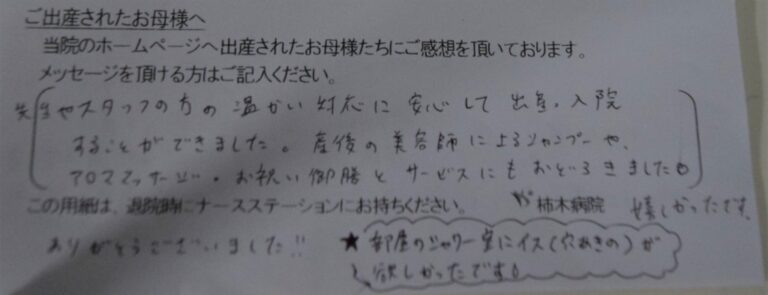 ご出産されたお母様へ
当院のホームページへ出産されたお母様たちにご感想を頂いております。
メッセージを頂ける方はご記入ください。
先生やスタッフの方の温かい対応に安心して出産、入院
することができました。産後の美容師によるシャンプーや、
アロママッサージ・お祝い御膳とサービスにもおどろきました。
この用紙は、退院時にナースステーションにお持ちください。 柿木病院 嬉しかったです。
ありがとうございました!!
★部屋のシャワー室にイス(穴あきの)が
欲しかったです。